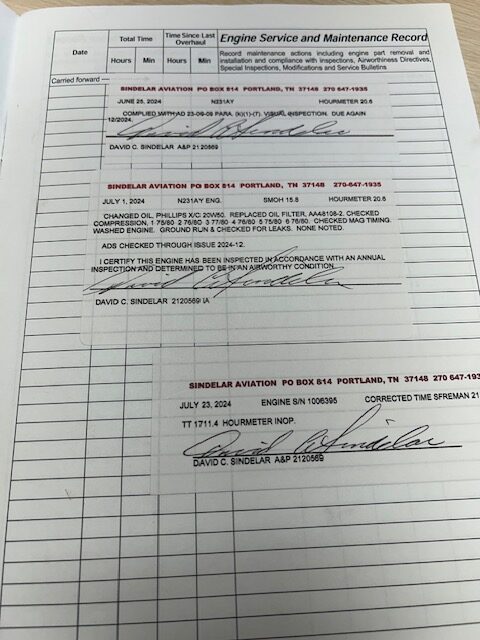 Date
Total Time
Time Since Last
Overhaul
Engine Service and Maintenance Record
Hours
Min
Hours
Min
Record maintenance actions including engine part removal and
installation and compliance with Inspections, Airworthiness Directives,
Special Inspections, Modifications and Service Bulletins
Carried forward
SINDELAR AVIATION PO BOX 814 PORTLAND, TN 37148 270 647-1935
JUNE 25, 2024 N231AY HOURMETER 20.6
COMPLIED WITH AD 23-09-09 PARA. (k)(1)-(7). VISUAL INSPECTION. DUE AGAIN
12/2024.
David C. Sindelar
DAVID C. SINDELAR A&P 2120569
SINDELAR AVIATION PO BOX 814 PORTLAND, TN 37148 270-647-1935
JULY 1, 2024 N231AY ENG. SMOH 15.8 HOURMETER 20.6
CHANGED OIL, PHILLIPS X/C 20W50. REPLACED OIL FILTER, AA48108-2. CHECKED
COMPRESSION, 1 75/80 2 76/80 3 77/80 4 76/80 5 75/80 6 76/80. CHECKED MAG TIMING.
WASHED ENGINE. GROUND RUN & CHECKED FOR LEAKS. NONE NOTED.
ADS CHECKED THROUGH ISSUE 2024-12.
I CERTIFY THIS ENGINE HAS BEEN INSPECTED IN ACCORDANCE WITH AN ANNUAL
INSPECTION AND DETERMINED TO BE IN AN AIRWORTHY CONDITION.
David C. Sindelar
DAVID C. SINDELAR 2120569 IA
SINDELAR AVIATION PO BOX 814 PORTLAND, TN 37148 270 647-193
JULY 23, 2024 ENGINE S/N 1006395 CORRECTED TIME SFREMAN 21
TT 1711.4 HOURMETER INOP.
David C. Sindelar
DAVID C. SINDELAR A&P 2120569